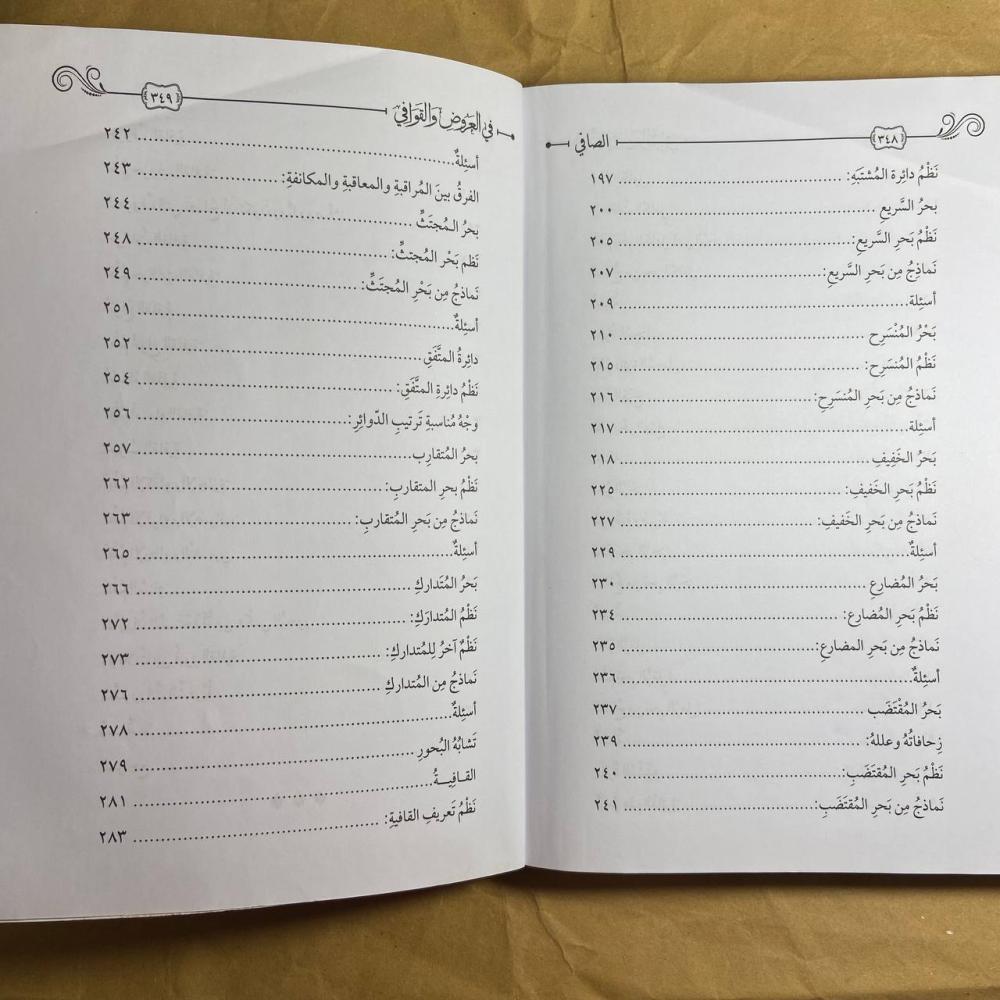 ٣٤٨
الصافي
نَظْمُ دائرة المُشتبَهِ: ١٩٧
بحرُ السَّريعِ ٢٠٠
نَظْمُ بَحرِ السَّريعِ: ٢٠٥
نَماذِجُ مِن بَحرِ السَّريعِ: ٢٠٧
أسئِلة ٢٠٩
بَحْرُ المُنْسَرِح ٢١٠
نَظْمُ المُنسَرِحِ: ٢١٥
نَماذِجُ مِن بَحرِ المُنسَرِحِ: ٢١٦
أسئِلة ٢١٧
بَحرُ الخَفِيفِ ٢١٨
نَظْمُ بَحرِ الخَفيفِ: ٢٢٥
نَماذِجُ مِن بَحرِ الخَفيفِ: ٢٢٧
أسئِلةٌ ٢٢٩
بَحرُ المُضارعِ ٢٣٠
نَظْمُ بَحرِ المُضارِع: ٢٣٤
نَماذجُ مِن بَحرِ المضارعِ: ٢٣٥
أسئِلةٌ ٢٣٦
بَحرُ المُقْتَضَب ٢٣٧
زِحافاتُهُ وعللهُ: ٢٣٩
نَظْمُ بَحرِ المُقتَضَبِ: ٢٤٠
نَماذجُ مِن بَحرِ المُقتَضَبِ: ٢٤١
في العروض والقوافي
٣٤٩
أسئِلةٌ ٢٤٢
الفرقُ بينَ المُراقبةِ والمعاقبةِ والمكانفةِ: ٢٤٣
بحرُ المُجتَثِّ ٢٤٤
نَظم بَحْر المُجتثِّ: ٢٤٨
نَماذجُ مِن بَحْرِ المُجتَثِّ: ٢٤٩
أسئِلةٌ ٢٥١
دائِرةُ المتَّفَقِ ٢٥٢
نَظْمُ دائِرةِ المتَّفَقِ: ٢٥٤
وجْهُ مُناسبةِ تَرتيبِ الدّوائِرِ: ٢٥٦
بحرُ المُتقارِب ٢٥٧
نَظْمُ بحرِ المتقاربِ: ٢٦٢
نَماذجُ مِن بَحرِ المُتقاربِ: ٢٦٣
أسئِلةٌ ٢٦٥
بَحرُ المُتَداركِ ٢٦٦
نَظْمُ المُتدارَكِ: ٢٧٢
نَظْمٌ آخرُ لِلمُتداركِ: ٢٧٣
نَماذجُ مِن المُتداركِ ٢٧٦
أسئِلةٌ ٢٧٨
تَشابُهُ البُحورِ ٢٧٩
القـافِيـةُ ٢٨١
نَظْمُ تَعريفِ القافيةِ: ٢٨٣